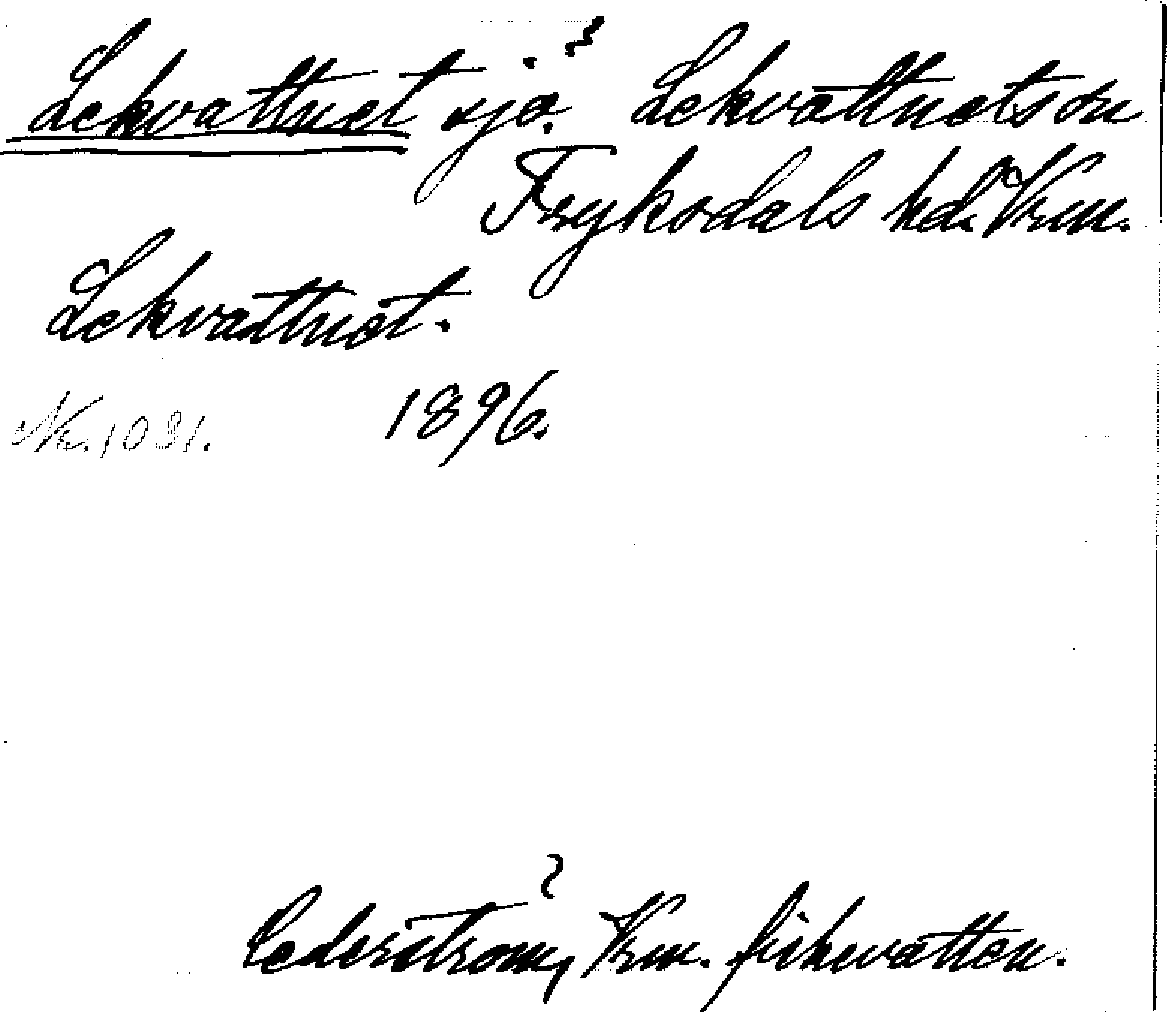 Lekvattnet sjö. Lekvattnets sn
Fryksdals hd. Vrm.
Lekvattnet.
Nr. 1031. 1896.
Cederström, Vrm. fiskvatten.